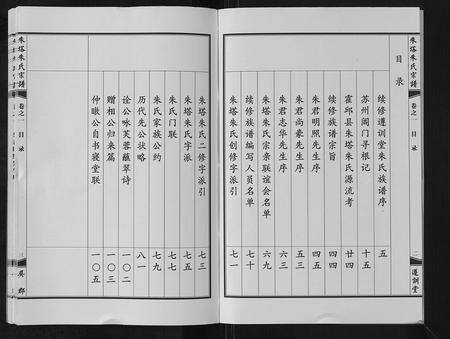 朱塔朱氏宗譜
卷之一
目录
遵訓堂
目录
续修遵训堂朱氏族谱序 五
苏州阊门寻根记 十五
霍邱县朱塔朱氏源流考 廿四
续修族谱宗旨 四四
朱君明照先生序 四五
朱君尚豪先生序 五三
朱君志华先生序 六三
朱塔朱氏宗亲联谊会名单 六九
续修族谱编写人员名单 七十
朱塔朱氏创修字派引 七一
朱塔朱氏二修字派引 七三
朱塔朱氏字派 七五
朱氏门联 七七
朱氏家族公约 七九
历代先公状略 八一
诠公咏芙蓉蘸翠诗 一〇二
赠相公归来篇 一〇三
仲暾公自书寝堂联 一〇五
朱塔朱氏宗譜
卷之一
目录
吴郡